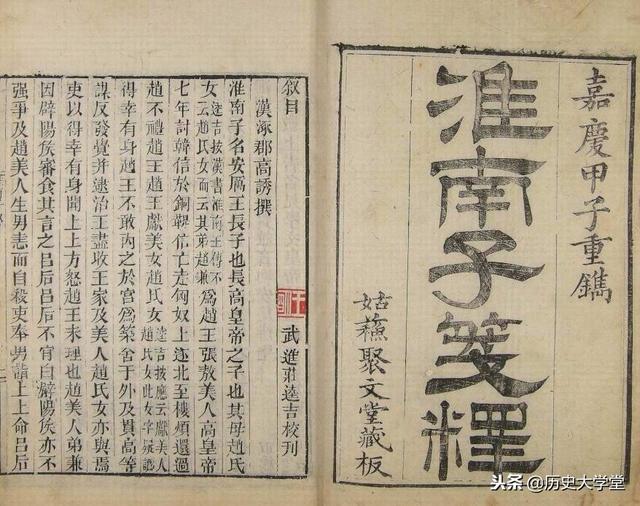 嘉慶甲子重鐫
淮南子箋釋
姑蘓聚文堂藏板
叙目
漢涿郡高誘撰
武進莊逵吉校刊
淮南子名安厲王長子也長高皇帝之子也其母趙氏
女逵吉按漢書淮南王傳不云趙氏女而云其弟趙兼為趙王張敖美人高皇帝
七年討韓信於銅鞮信亡走匈奴上遂北至樓煩還過
趙不禮趙王趙王獻美女趙氏女逵吉按應云獻美人趙氏女此女字疑譌
得幸有身趙王不敢內之於宮為築舍于外及貫高等
謀反發覺并逮治王盡收王家及美人趙氏女亦與焉
吏以得幸有身聞上上方怒趙王未理也趙美人弟兼
因辟陽侯審食其言之呂后呂后不肯白辟陽侯亦不
强爭及趙美人生男恚而自殺吏奉男詣上上命呂后
头条 @历史大学堂